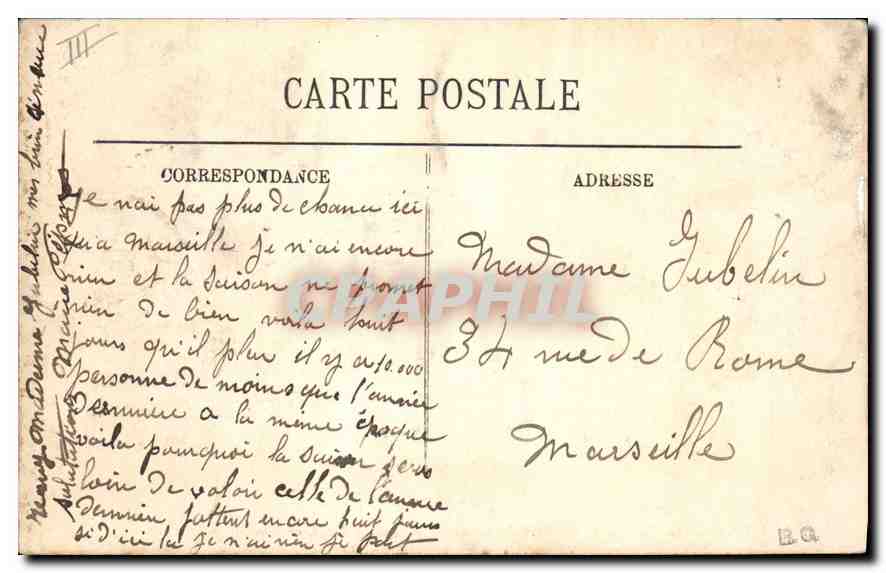 III
CARTE POSTALE
CORRESPONDANCE
ADRESSE
Je nai pas plus de chance ici
qu'a Marseille je n'ai encore
rien et la saison ne promet
rien de bien voila huit
jours qu'il pleu il y a 10.000
personne de moins que l'année
dernnière a la même époque
voila pourquoi la saison sera
loin de valoir celle de l'année
dernnièr jattent encore huit jours
si d'ici la je n'ai rien je part
Recevez Madame Jubelin mes bien
salutations Marie
Madame Jubelin
34 rue de Rome
Marseille
CPAPHIL
R.G.